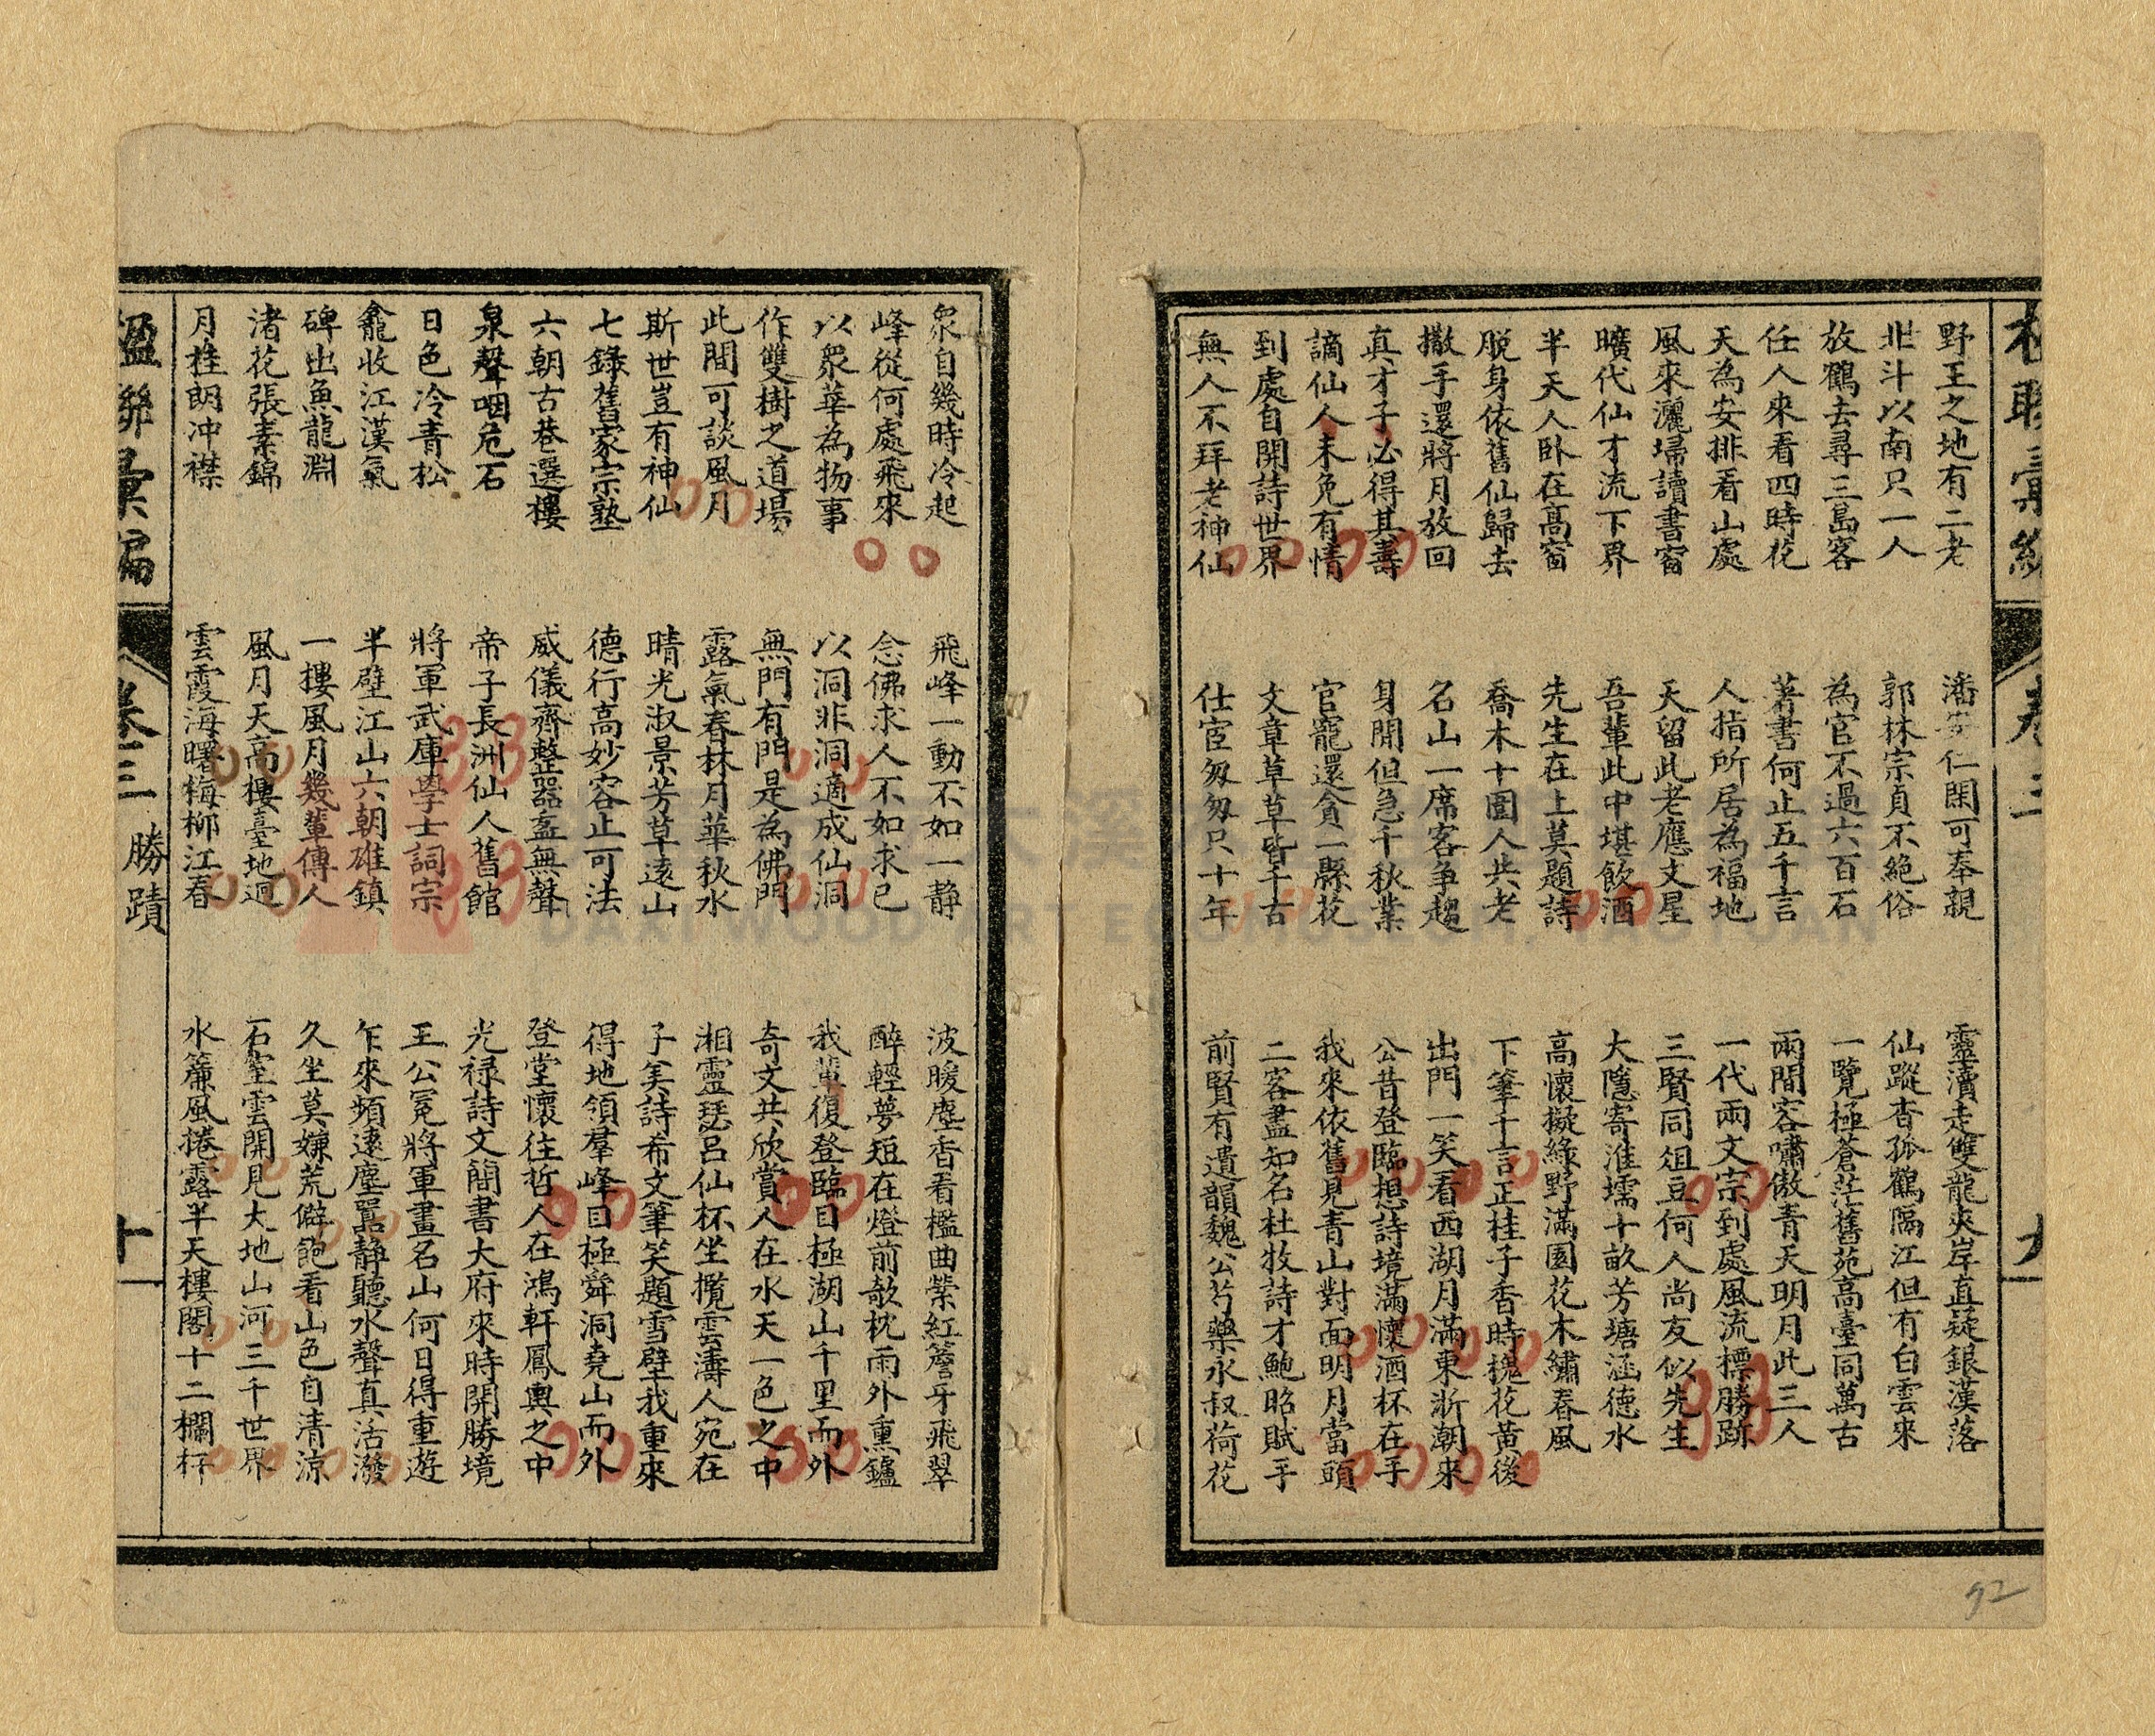 楹聯彙編
卷三
九
野王之地有二老
北斗以南只一人
放鶴去尋三島客
任人來看四時花
天為安排看山處
風來灑埽讀書窗
曠代仙才流下界
半天人臥在高窗
脫身依舊仙歸去
撒手還將月放回
真才子必得其壽
謫仙人未免有情
到處自開詩世界
無人不拜老神仙
潘安仁閑可奉親
郭林宗貞不絕俗
為官不過六百石
著書何止五千言
人指所居為福地
天留此老應文星
吾輩此中堪飲酒
先生在上莫題詩
喬木十圍人共老
名山一席客爭趨
身閒但急千秋業
官寵還貪一縣花
文章草草皆千古
仕宦匆匆只十年
靈瀆走雙龍夾岸直疑銀漢落
仙蹤杳孤鶴隔江但有白雲來
一覽極蒼茫舊苑高臺同萬古
兩間容嘯傲青天明月此三人
一代兩文宗到處風流標勝跡
三賢同俎豆何人尚友似先生
大隱寄淮壖十畝芳塘涵德水
高懷擬綠野滿園花木繡春風
下筆千言正桂子香時槐花黃後
出門一笑看西湖月滿東浙潮來
公昔登臨想詩境滿懷酒杯在手
我來依舊見青山對面明月當頭
二客盡知名杜牧詩才鮑昭賦手
前賢有遺韻魏公芍藥永叔荷花
92
泉自幾時冷起
峰從何處飛來
以眾華為物事
作雙樹之道場
此間可談風月
斯世豈有神仙
七錄舊家宗塾
六朝古巷選樓
泉聲咽危石
日色冷青松
龕收江漢氣
碑出魚龍淵
渚花張素錦
月桂朗冲襟
飛峰一動不如一靜
念佛求人不如求己
以洞非洞適成仙洞
無門有門是為佛門
露氣春林月華秋水
晴光淑景芳草遠山
德行高妙容止可法
威儀齊整器盍無聲
帝子長洲仙人舊館
將軍武庫學士詞宗
半壁江山六朝雄鎮
一摟風月幾輩傳人
風月天高樓臺地迥
雲霞海曙梅柳江春
波暖塵香看檻曲縈紅簷牙飛翠
醉輕夢短在燈前欹枕雨外熏鑪
我輩復登臨目極湖山千里而外
奇文共欣賞人在水天一色之中
湘靈瑟呂仙杯坐攬雲濤人宛在
子美詩希文筆笑題雪壁我重來
得地領羣峰目極舜洞堯山而外
登堂懷往哲人在鴻軒鳳輿之中
光祿詩文簡書大府來時開勝境
王公冕將軍畫名山何日得重遊
乍來頻遠塵囂靜聽水聲真活潑
久坐莫嫌荒僻飽看山色自清涼
石室雲開見大地山河三千世界
水簾風捲露半天樓閣十二欄杆
楹聯彙編
卷三
勝蹟
十
DAXI WOOD ART ECOMUSEUM, TAOYUAN